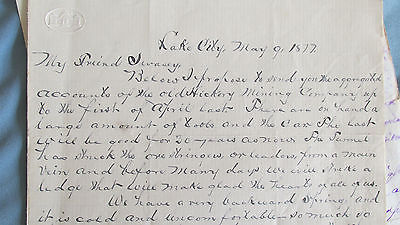 Lake City, May 9, 1877
My Freind Swasey,
Below I propose to send you the aggregated
accounts of the old Hickory Mining Company up
to the first of April last There are on hand a
large amount of tools and the Car The last
will be good for 20 years as now The Tunnel
has struck the one stringer or leader from a main
vein and before many days we will strike a
ledge that will make glad the hearts of all of us.
We have a very backward Spring and
it is cold and uncomfortable - so much so